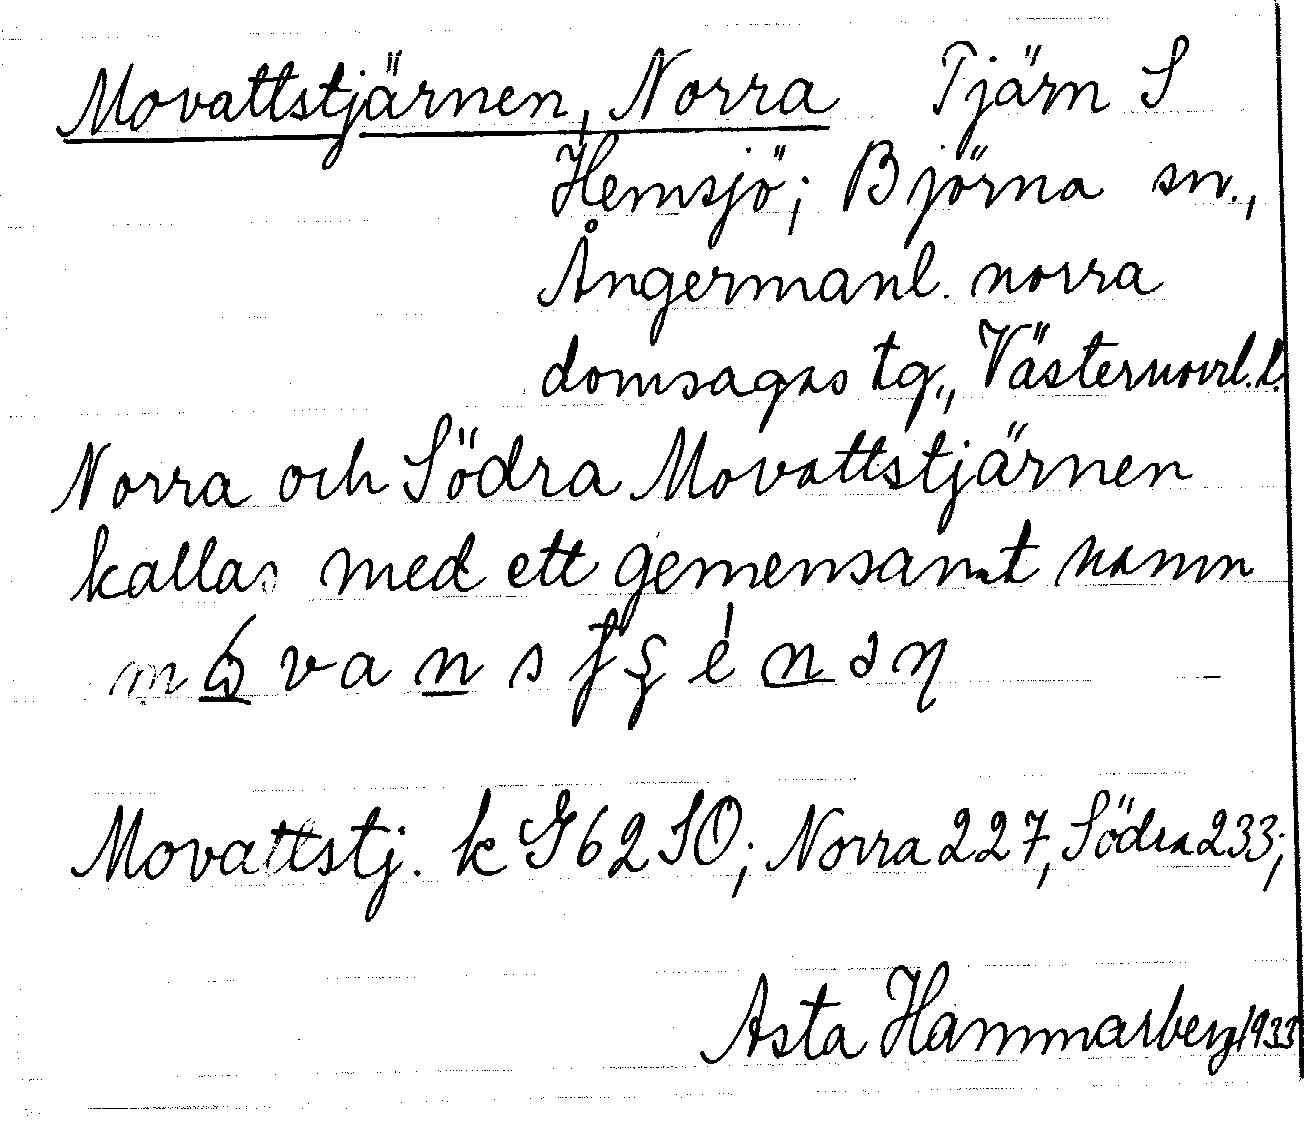 Movattstjärnen, Norra Tjärn S
Hemsjö; Björna sn.,
Ångermanl. norra
domsagas tg., Västernorrl. l.
Norra och Södra Movattstjärnen
kallas med ett gemensamt namn
Movattstj. k G62SO; Norra 227, Södra 233;
Asta Hammarberg 1933